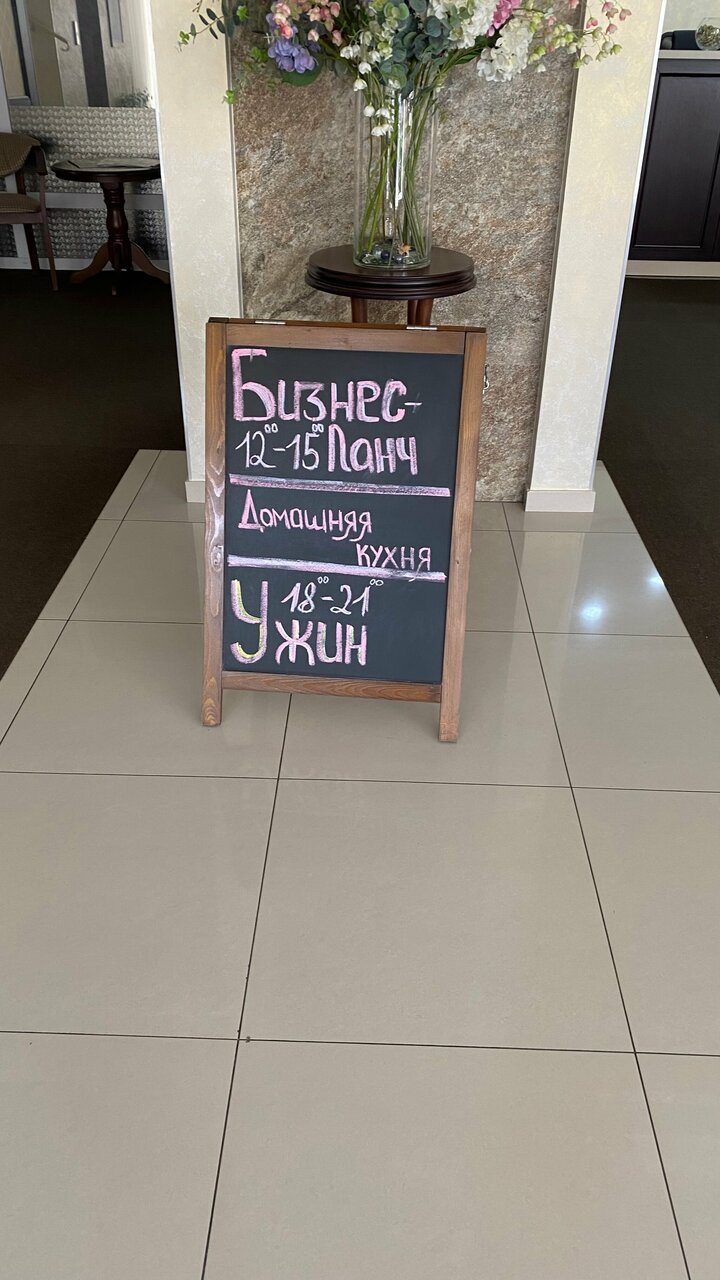 Бизнес-
12⁰⁰-15⁰⁰ Ланч
Домашняя
кухня
18⁰⁰-21⁰⁰
Ужин